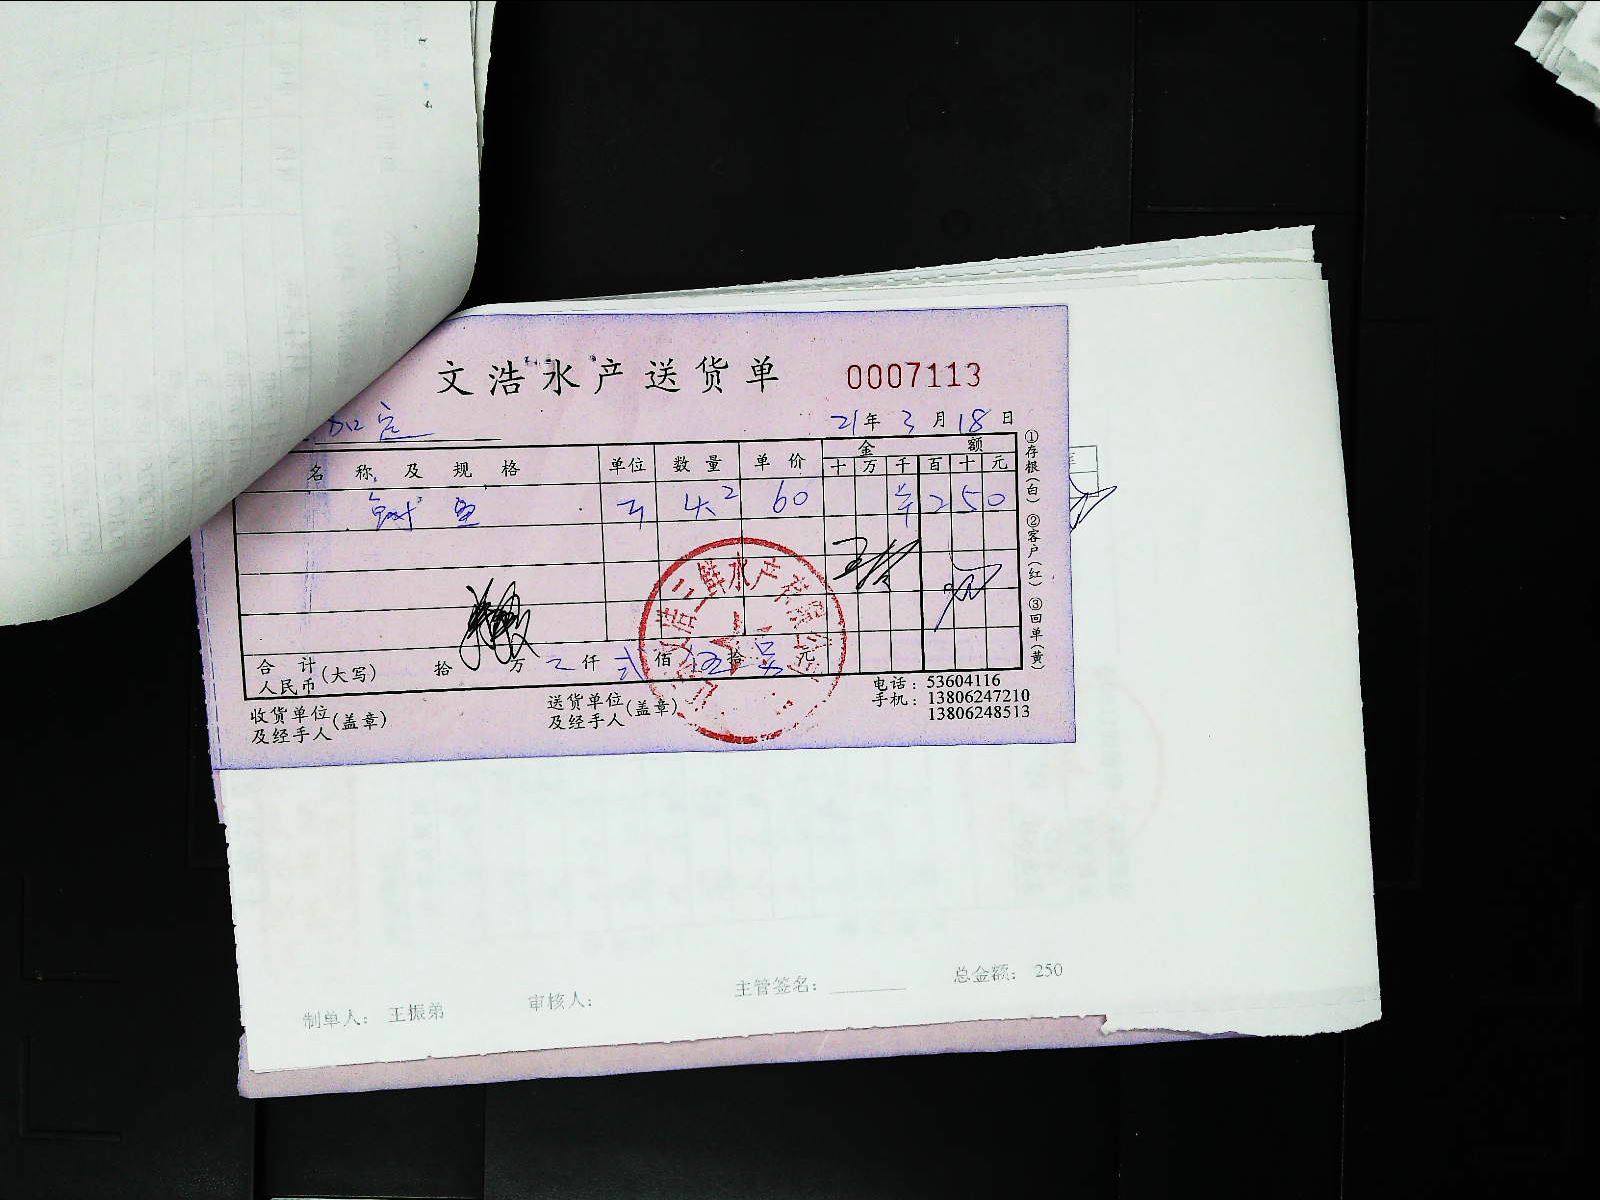 文浩水产送货单 0007113
加定
21年3月18日
名称及规格 单位 数量 单价 金额
十万千百十元
鱼 斤 4.2 60 250
合计人民币(大写) 拾 万 仟 弍佰伍拾 元
收货单位及经手人(盖章) 送货单位及经手人(盖章)
电话：53604116
手机：13806247210
13806248513
①存根(白) ②客户(红) ③回单(黄)
三鲜水产有限公司
制单人： 王振弟 审核人： 主管签名： 总金额： 250